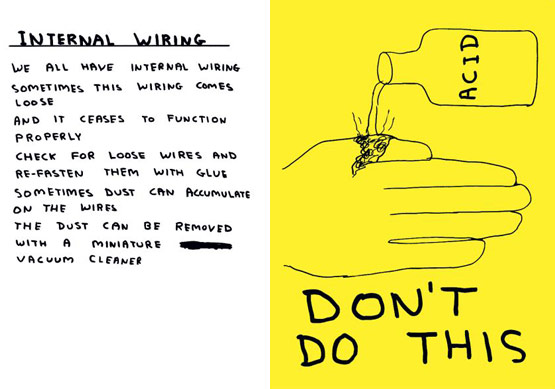 INTERNAL WIRING
WE ALL HAVE INTERNAL WIRING
SOMETIMES THIS WIRING COMES
LOOSE
AND IT CEASES TO FUNCTION
PROPERLY
CHECK FOR LOOSE WIRES AND
RE-FASTEN THEM WITH GLUE
SOMETIMES DUST CAN ACCUMULATE
ON THE WIRES
THE DUST CAN BE REMOVED
WITH A MINIATURE
VACUUM CLEANER
ACID
DON'T
DO THIS